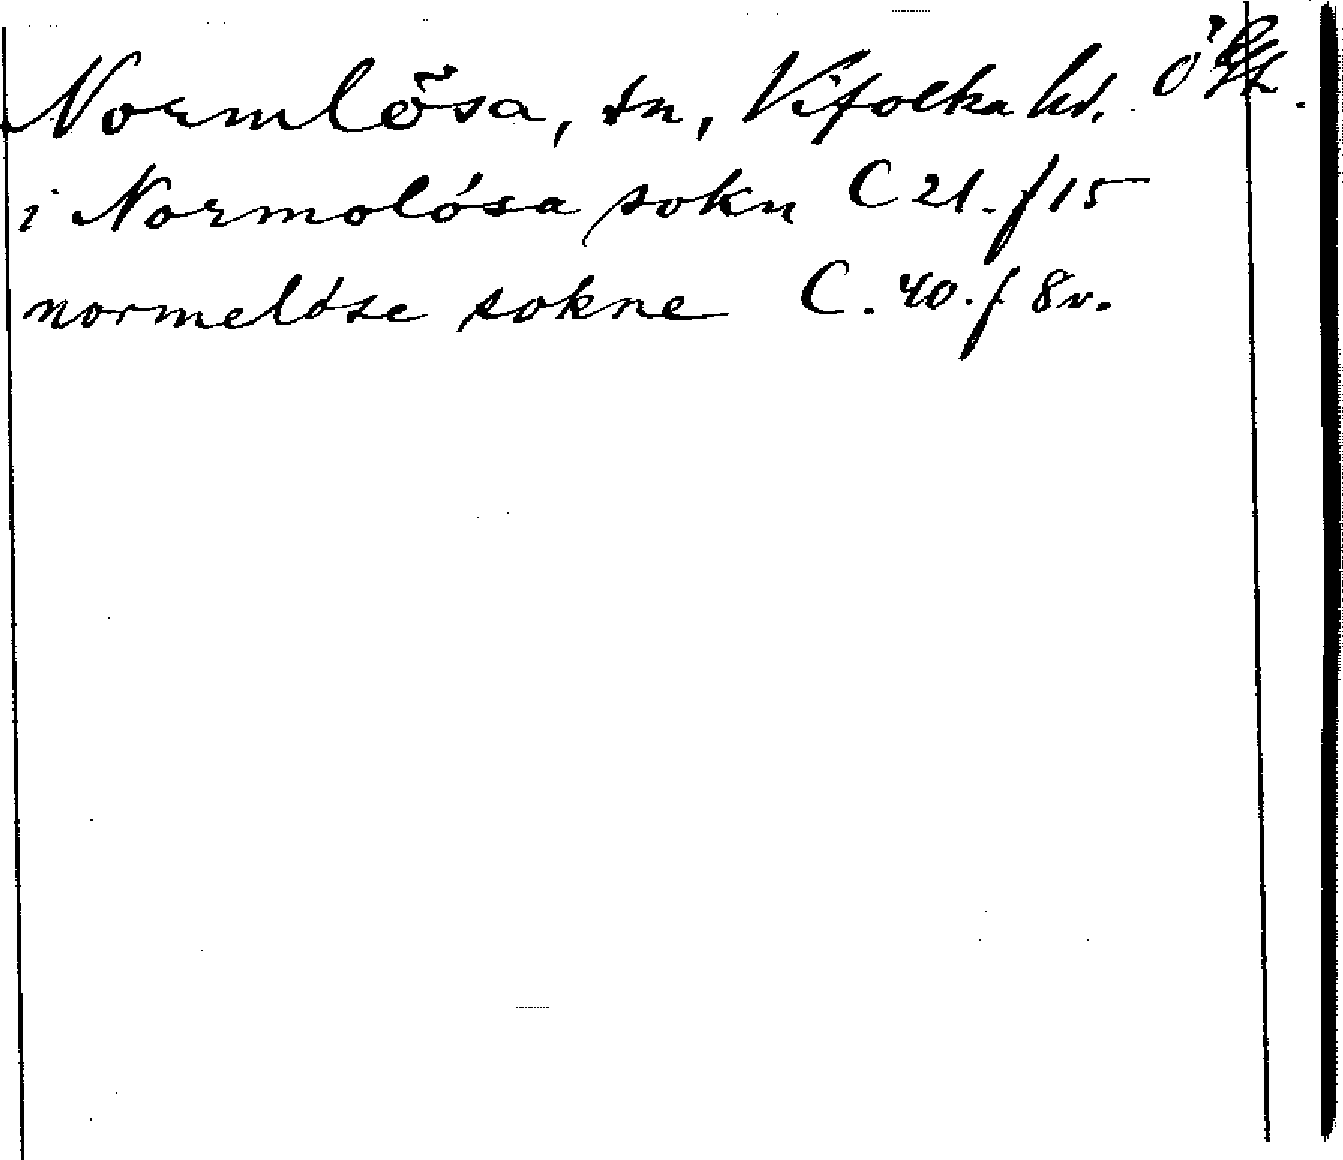 Normlösa, sn, Vifolka hd. Ög.
i Normolósa sokn C 21. f 15
normelóse sokne C. 40. f 8v.